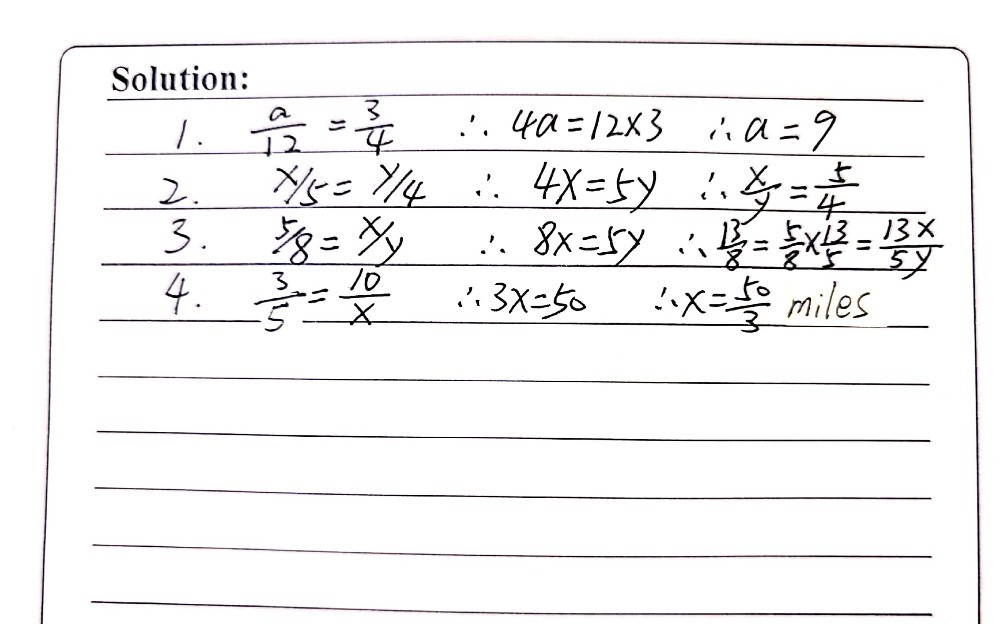 Solution:
1. a/12 = 3/4 ∴ 4a=12×3 ∴ a=9
2. x/5 = y/4 ∴ 4x=5y ∴ x/y = 5/4
3. 5/8 = x/y ∴ 8x=5y ∴ 13/8 = 5/8 × 13/5 = 13x/5y
4. 3/5 = 10/x ∴ 3x=50 ∴ x = 50/3 miles